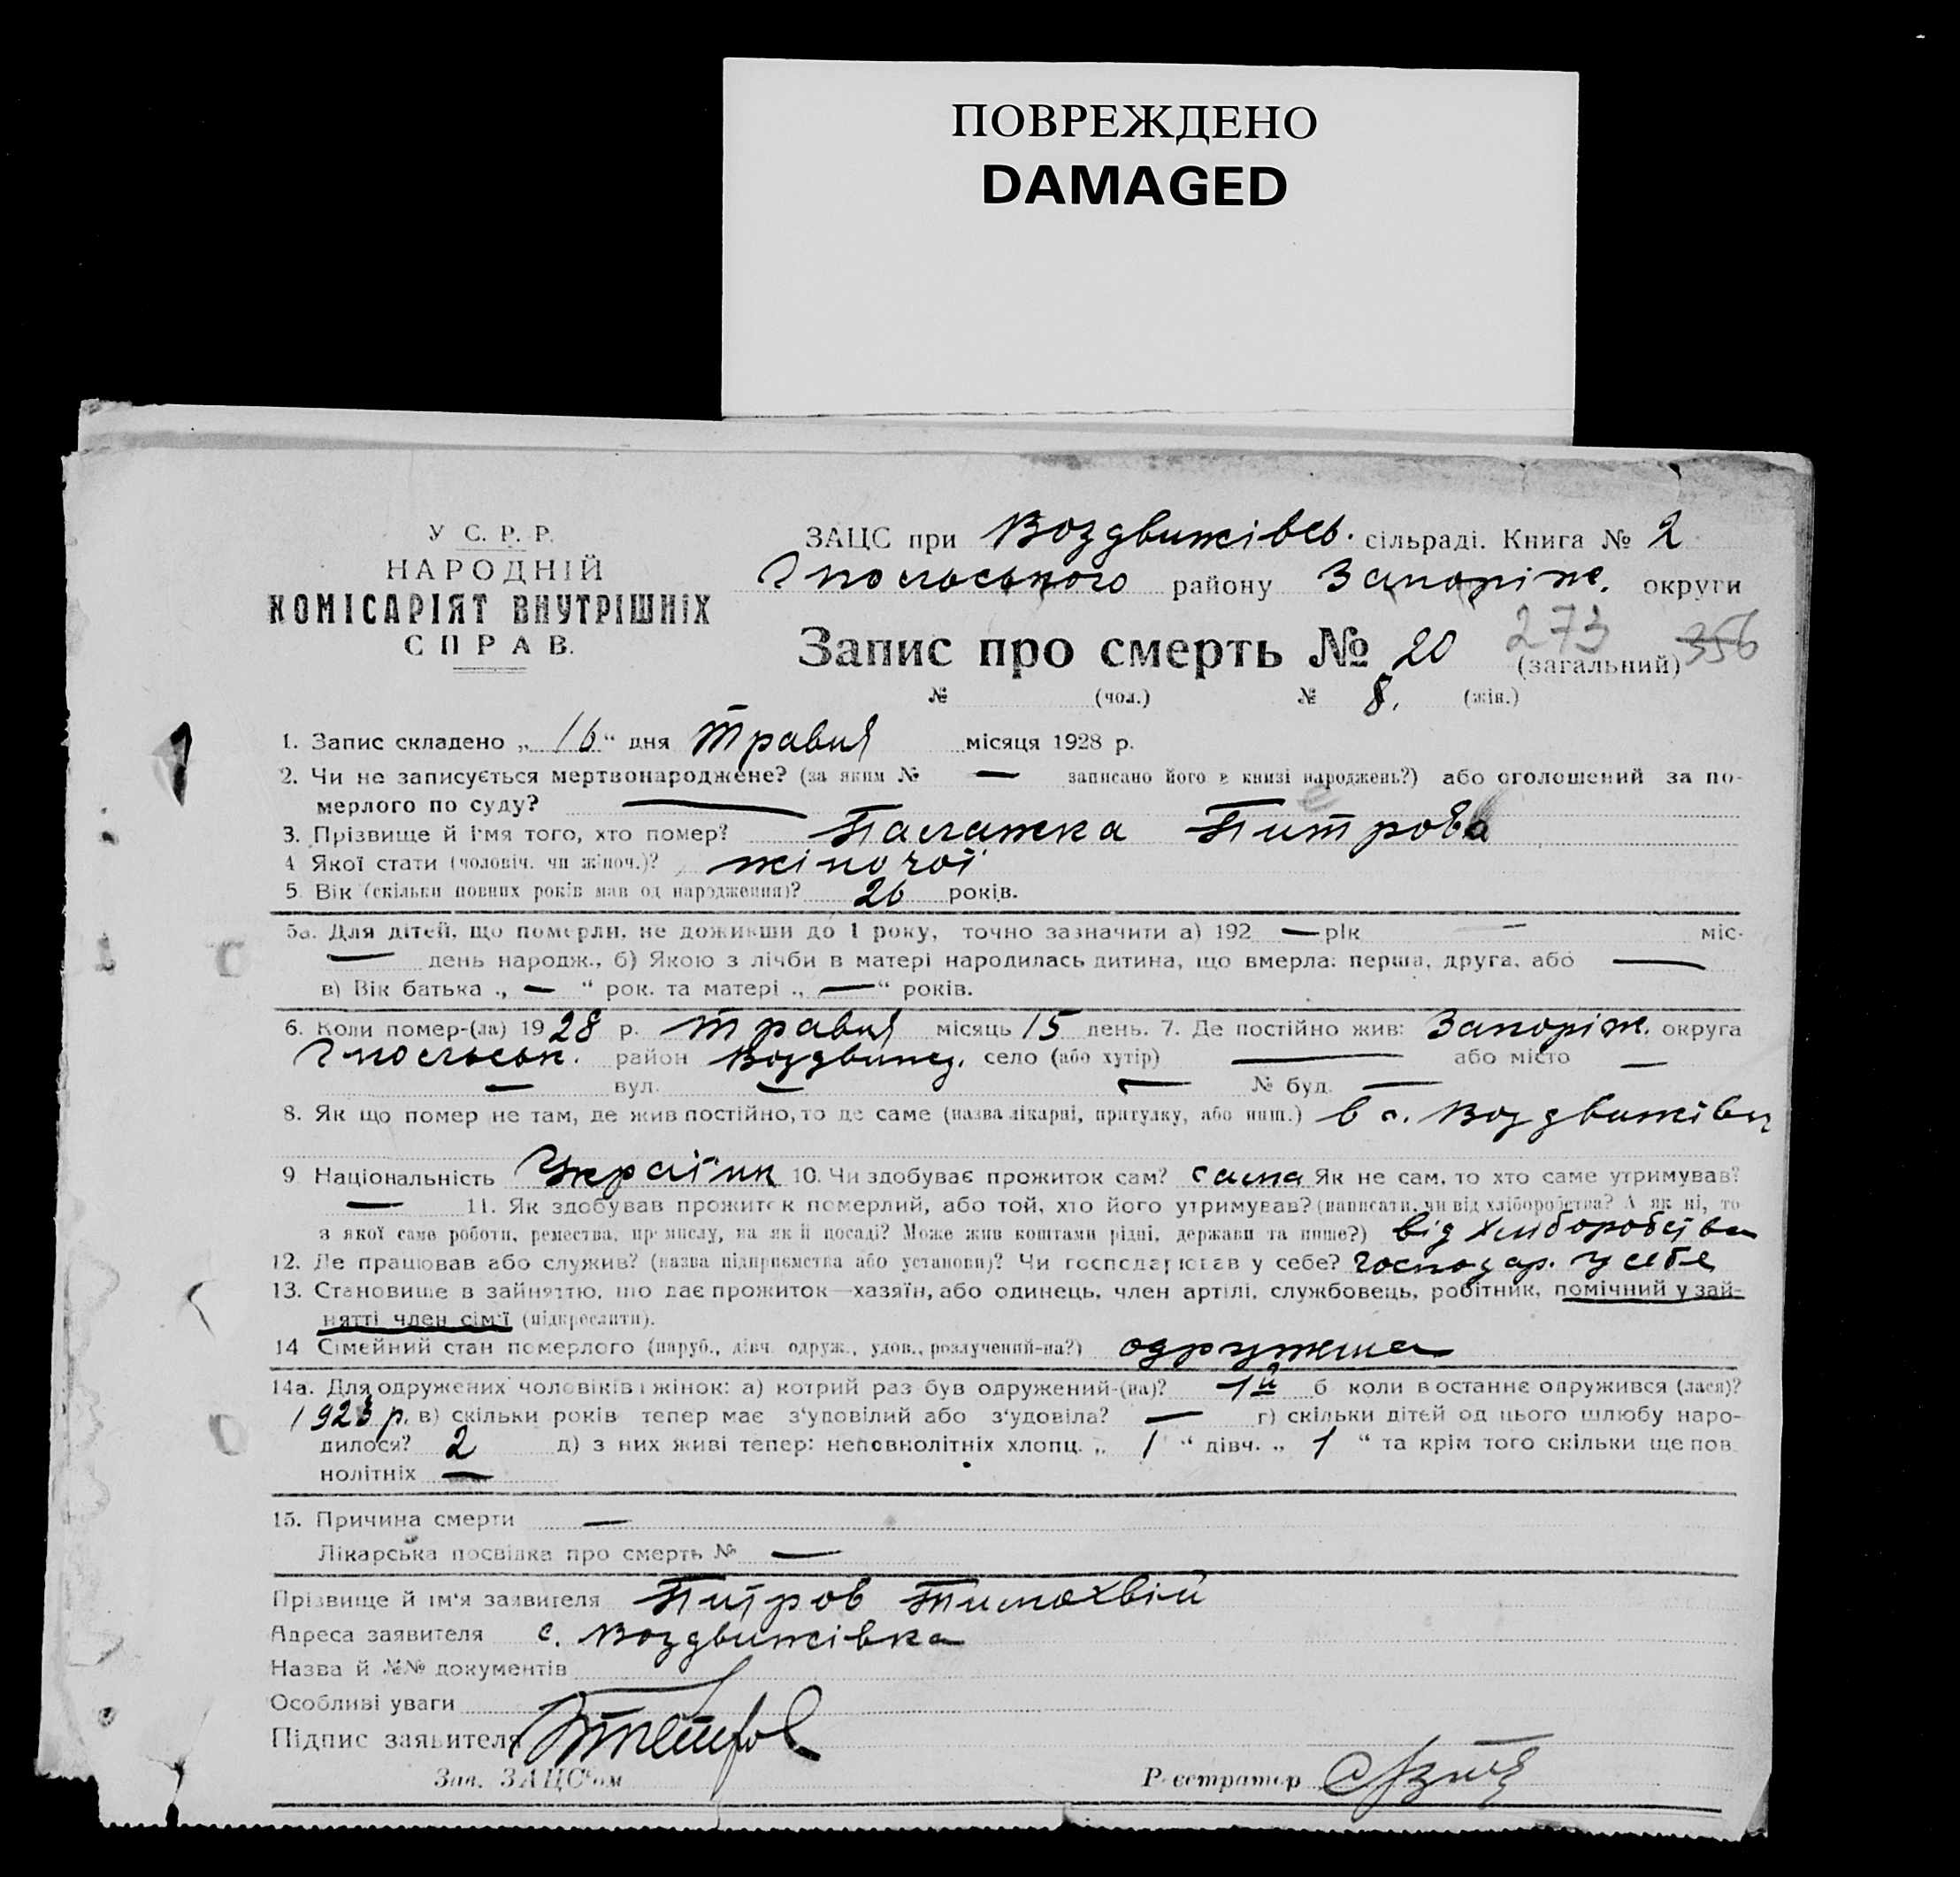 ПОВРЕЖДЕНО
DAMAGED
У С. Р. Р.
НАРОДНІЙ
КОМІСАРІЯТ ВНУТРІШНІХ
СПРАВ.
ЗАЦС при Воздвижівсь. сільраді. Книга № 2
району Запоріж. округи
Запис про смерть № 20 (загальний) 273 356
№ (чол.) № 8. (жін.)
1. Запис складено „ 16 “ дня травня місяця 1928 р.
2. Чи не записується мертвонароджене? (за яким № — записано його в книзі народжень?) або оголошений за по-
мерлого по суду? —
3. Прізвище й імя того, хто помер? Палажка Питрова
4 Якої стати (чоловіч. чи жіноч.)? жіночої
5. Вік (скільки повних років мав од народження)? 26 років.
5а. Для дітей, що померли, не доживши до 1 року, точно зазначити а) 192 — рік — міс.
— день народж., б) Якою з лічби в матері народилась дитина, що вмерла: перша, друга, або —
в) Вік батька „ — “ рок. та матері „ — “ років.
6. Коли помер-(ла) 1928 р. травня місяць 15 день. 7. Де постійно жив: Запоріж. округа
район Воздвижд. село (або хутір) — або місто —
— вул. — — № буд. —
8. Як що помер не там, де жив постійно, то де саме (назва лікарні, притулку, або инш.) в с. Воздвижівці
9 Національність Україн 10. Чи здобуває прожиток сам? сама Як не сам, то хто саме утримував?
— 11. Як здобував прожиток померлий, або той, хто його утримував? (написати, чи від хліборобства? А як ні, то
з якої саме роботи, ремества, промислу, на якій посаді? Може жив коштами рідні, держави та инше?) від хліборобства
12. Де працював або служив? (назва підприємства або установи)? Чи господарював у себе? господар. у себе
13. Становище в зайняттю, що дає прожиток—хазяїн, або одинець, член артілі, службовець, робітник, помічний у зай-
нятті член сім'ї (підкреслити).
14 Сімейний стан померлого (паруб., дівч. одруж., удов., розлучений-на?) одружена
14а. Для одружених чоловіків і жінок: а) котрий раз був одружений-(на)? 1й б коли в останнє одружився (лася)?
1923 р. в) скільки років тепер має з'удовілий або з'удовіла? — г) скільки дітей од цього шлюбу наро-
дилося? 2 д) з них живі тепер: неповнолітніх хлопц. „ 1 “ дівч. „ 1 “ та крім того скільки ще пов
нолітніх —
15. Причина смерти —
Лікарська посвідка про смерть № —
Прізвище й ім'я заявителя Питров Тимохвій
Адреса заявителя с. Воздвижівка
Назва й №№ документів
Особливі уваги
Підпис заявителя
Зав. ЗАЦС'ом Реєстратор